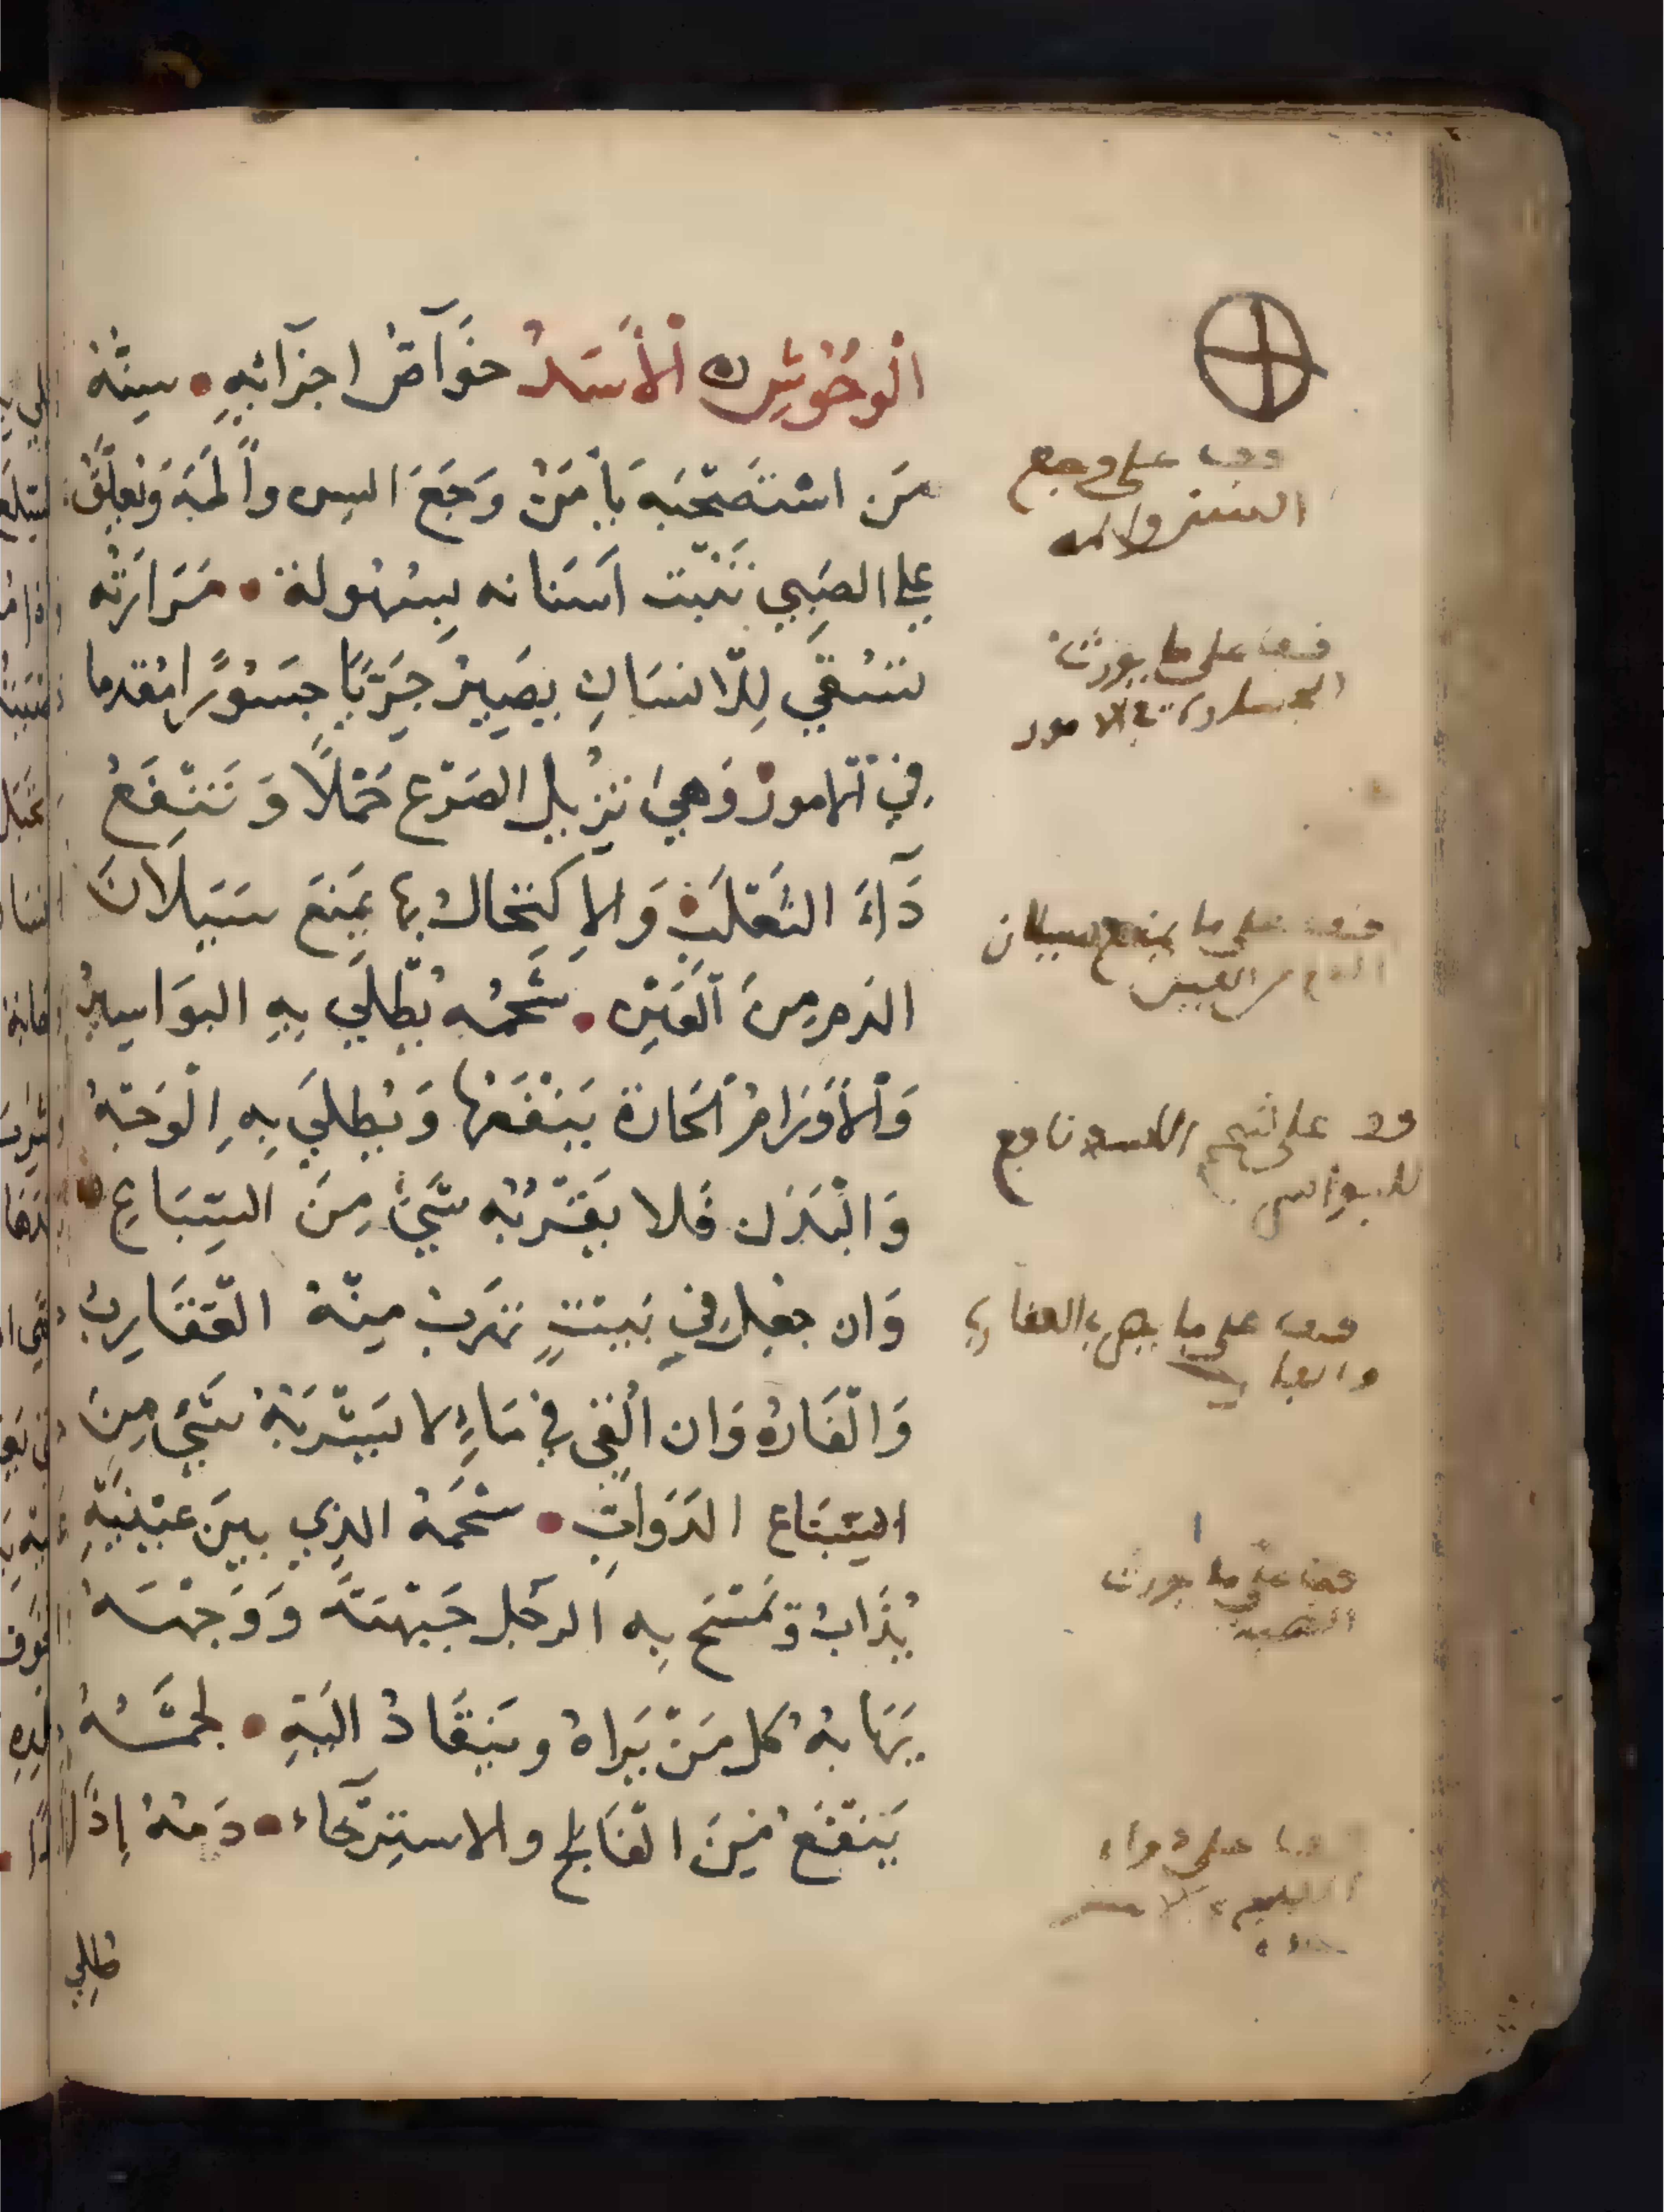 الْوحُوُشِ ه الْأَسَدُ خوَآصُ اجزَآئِهِ • سِنّهُ
مَن اسْتَصْحَبَهُ يَأمَنْ وَجَعَ السِن وأَلمَهُ وَتُعلّقُ
علي الصَبِي تَنْبُت اَسنَانه بِسُهُولة • مَرَارَتُه
تسُقَي لِلاِنسَانِ يصَيِرُ جَرِيًا جسَوُرًا مُقدما
في اْلاموُر وَهيَ تزُيل الصَرْع حَمْلًا وَ تَنْفَعُ
دَآءَ الثعَلَبِ وَالاِكتِحَال بها يَمنَع سَيَلَانَ
الدَم مِنَ الْعَيْن • شَحْمُه يُطْلَي بِهِ البوَاسِيْرُ
وَالْأَوْرَامْ اْلحَارة يَنْفَعَها وَ يُطلَي بِهِ الْوَجْهُ
وَالْبَدَن فَلا يقَرْبُه شَيْئ مِنَ السِبَاعِ
وَان جعُل في بَيْتٍ تهَرَبْ مِنْهُ الْعَقَارِبُ
وَالْفَارُه وَان الْقِيَ في مَاءٍ لا يَشْرَبْهُ شَيْئ مِنَ
السِبَاع الدَوَابِ • شحَمَهُ الذِي بيَن عَيْنيَهِ
يُذَابُ وَ تمَسَح بِه الرجَل جَبْهَتَه وَ وَجْهَهُ
يَهَابهُ كل مَنْ يَراهُ و يَنِقَادُ الَيْهِ • لحَمْهُ
يَنْفَعُ مِنَ الْفَالج والاستِرْخَاء • دَمُهُ إِذَا
طُلِي
قف على وجع
السن والمه
قف على ما يورث
الجسارة في الامور
قف على ما يمنع سيلان
الدم من العين
قف على شحم الاسد نافع
للبواسير
قف على ما يهرب العقارب
والفار
قف على ما يورث
الهيبة
قف على دواء